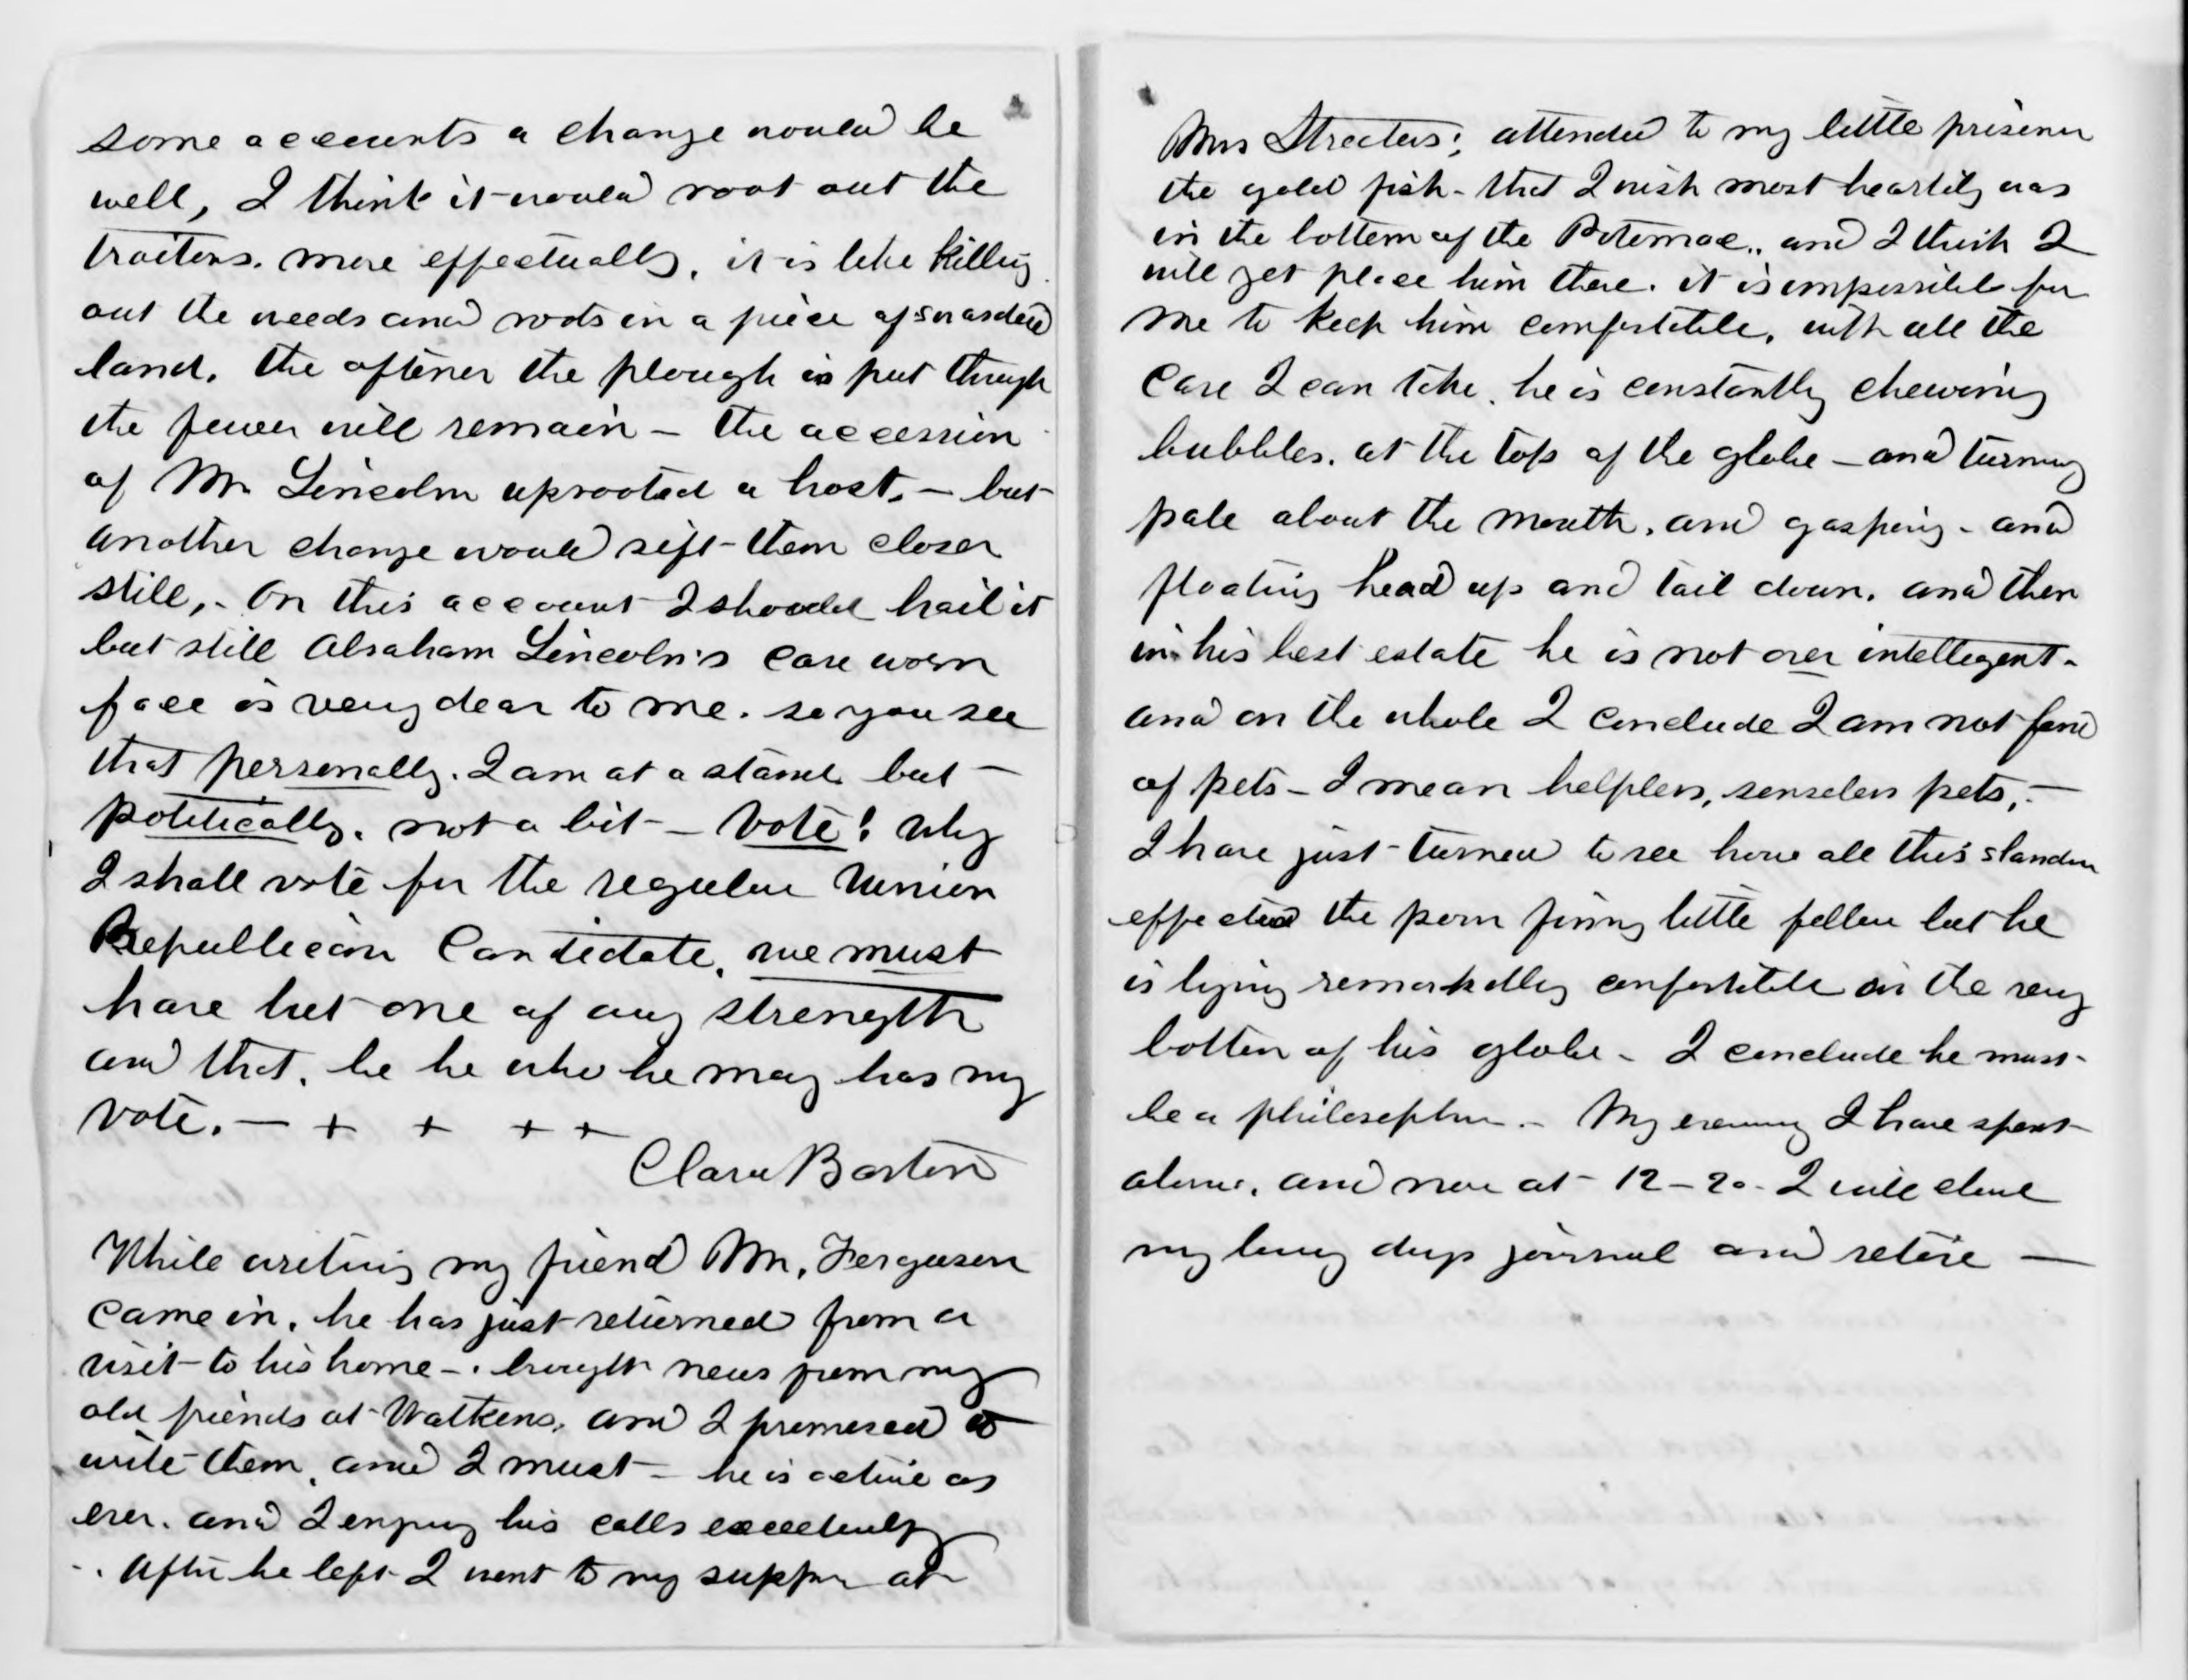 some accounts a change would be
well, I think it would root out the
traitors. more effectually, it is like killing
out the weeds and roots in a piece of swarded
land. the oftener the plough is put through
the fewer will remain – the accession
of Mr Lincoln uprooted a host. – but
another change would sift them closer
still, – On this account I should hail it
but still Abraham Lincoln's care worn
face is very dear to me. so you see
that personally. I am at a stand. but –
politically. not a bit – Vote! why
I shall vote for the regular Union
Republican Candidate, we must
have but one of any strength
and that, be he who he may has my
vote. – + + + +
Clara Barton
While writing my friend Mr. Ferguson
came in. he has just returned from a
visit to his home – . brought news from my
old friends at Watkens. and I promesed to
write them, and I must – he is active as
ever. and I enjoy his calls excellently
– . After he left I went to my supper at
Mrs Streeters; attended to my little prisoner
the gold fish – that I wish most heartily was
in the bottom of the Potomac.. and I think I
will yet place him there. it is impossible for
me to keep him comfortable, with all the
Care I can take. he is constantly chewing
bubbles. at the top of the globe – and turning
pale about the mouth, and gasping – and
floating head up and tail down. and then
in his best estate he is not over intellegent –
and on the whole I conclude I am not fond
of pets – I mean helpless, senseless pets, –
I have just turned to see how all this slander
effected the poor finny little fellow but he
is lying remarkably comfortable in the very
bottom of his globe – I conclude he must
be a philosopher – My evening I have spent
alone. and now at 12–20 – I will close
my long days journal and retire —